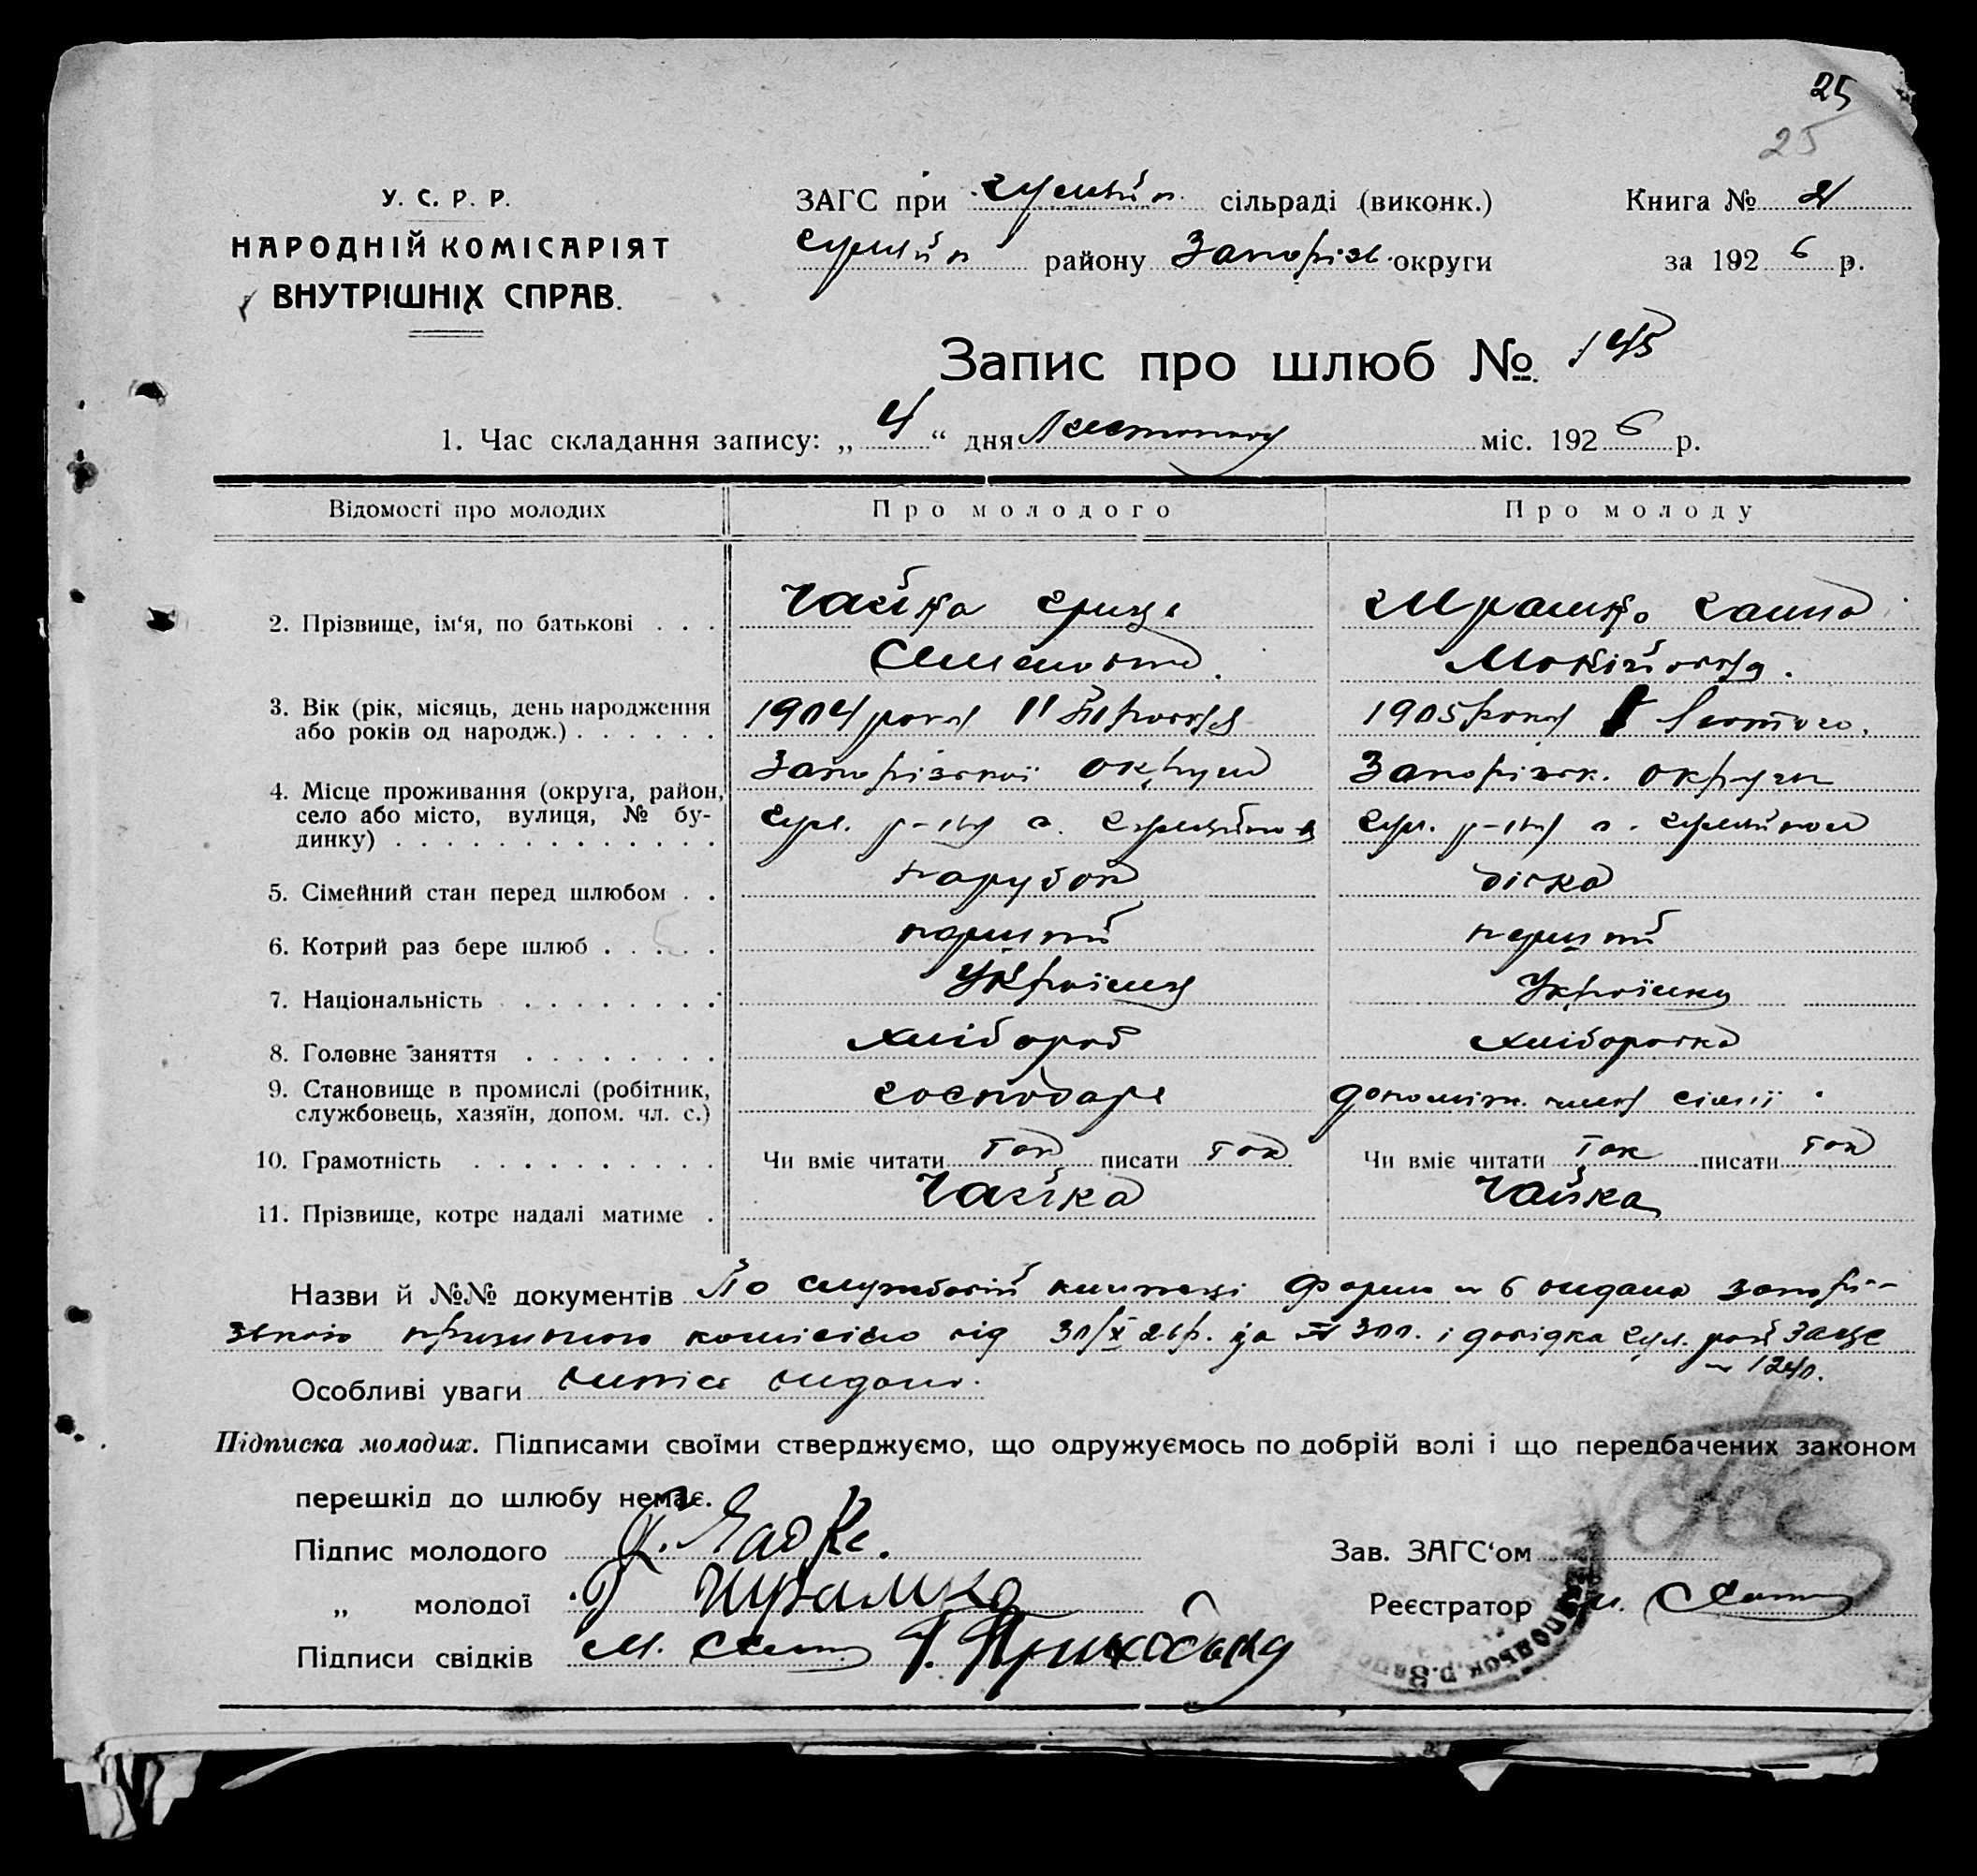 25
25
У. С. Р. Р.
НАРОДНІЙ КОМІСАРІЯТ
ВНУТРІШНІХ СПРАВ.
ЗАГС при Гуляйп. сільраді (виконк.)
Гуляйп району Запоріз. округи
Книга №
за 1926 р.
Запис про шлюб №
1. Час складання запису: „ 4 “ дня Листопада міс. 1926 р.
Відомості про молодих
Про молодого
Про молоду
2. Прізвище, ім‘я, по батькові . . .
Чайка Гриць
Семенович
Мокіївна.
3. Вік (рік, місяць, день народження
або років од народж.) . . . . . .
1904 року 11
1905 року Лютого.
4. Місце проживання (округа, район,
село або місто, вулиця, № бу-
динку) . . . . . . . . . . . . .
Запорізської округи
Гул. р-ну с. Гуляйполя
Запорізск. округи
Гул. р-ну с. Гуляйполя
5. Сімейний стан перед шлюбом . .
парубок
дівка
6. Котрий раз бере шлюб . . . . .
перший
перший
7. Національність . . . . . . . . .
Українец
Українка
8. Головне заняття . . . . . . . .
хлібороб
хліборобка
9. Становище в промислі (робітник,
службовець, хазяїн, допом. чл. с.)
господарь
допоміжн. член сімії
10. Грамотність . . . . . . . . . .
Чи вміє читати так писати так
Чи вміє читати так писати так
11. Прізвище, котре надалі матиме .
Чайка
Чайка
Назви й №№ документів По службовій книжеці форми № 6 видана Запорі-
зькою призивною комісією від 30/X 26 р. за № 300. і довідка Гул. рай ЗАГС
Особливі уваги видано.
Підписка молодих. Підписами своїми стверджуємо, що одружуємось по добрій волі і що передбачених законом
перешкід до шлюбу немає.
Підпис молодого Г. Чайка.
Зав. ЗАГС‘ом
„ молодої Г
Реєстратор М.
Підписи свідків М. Г. Приходько